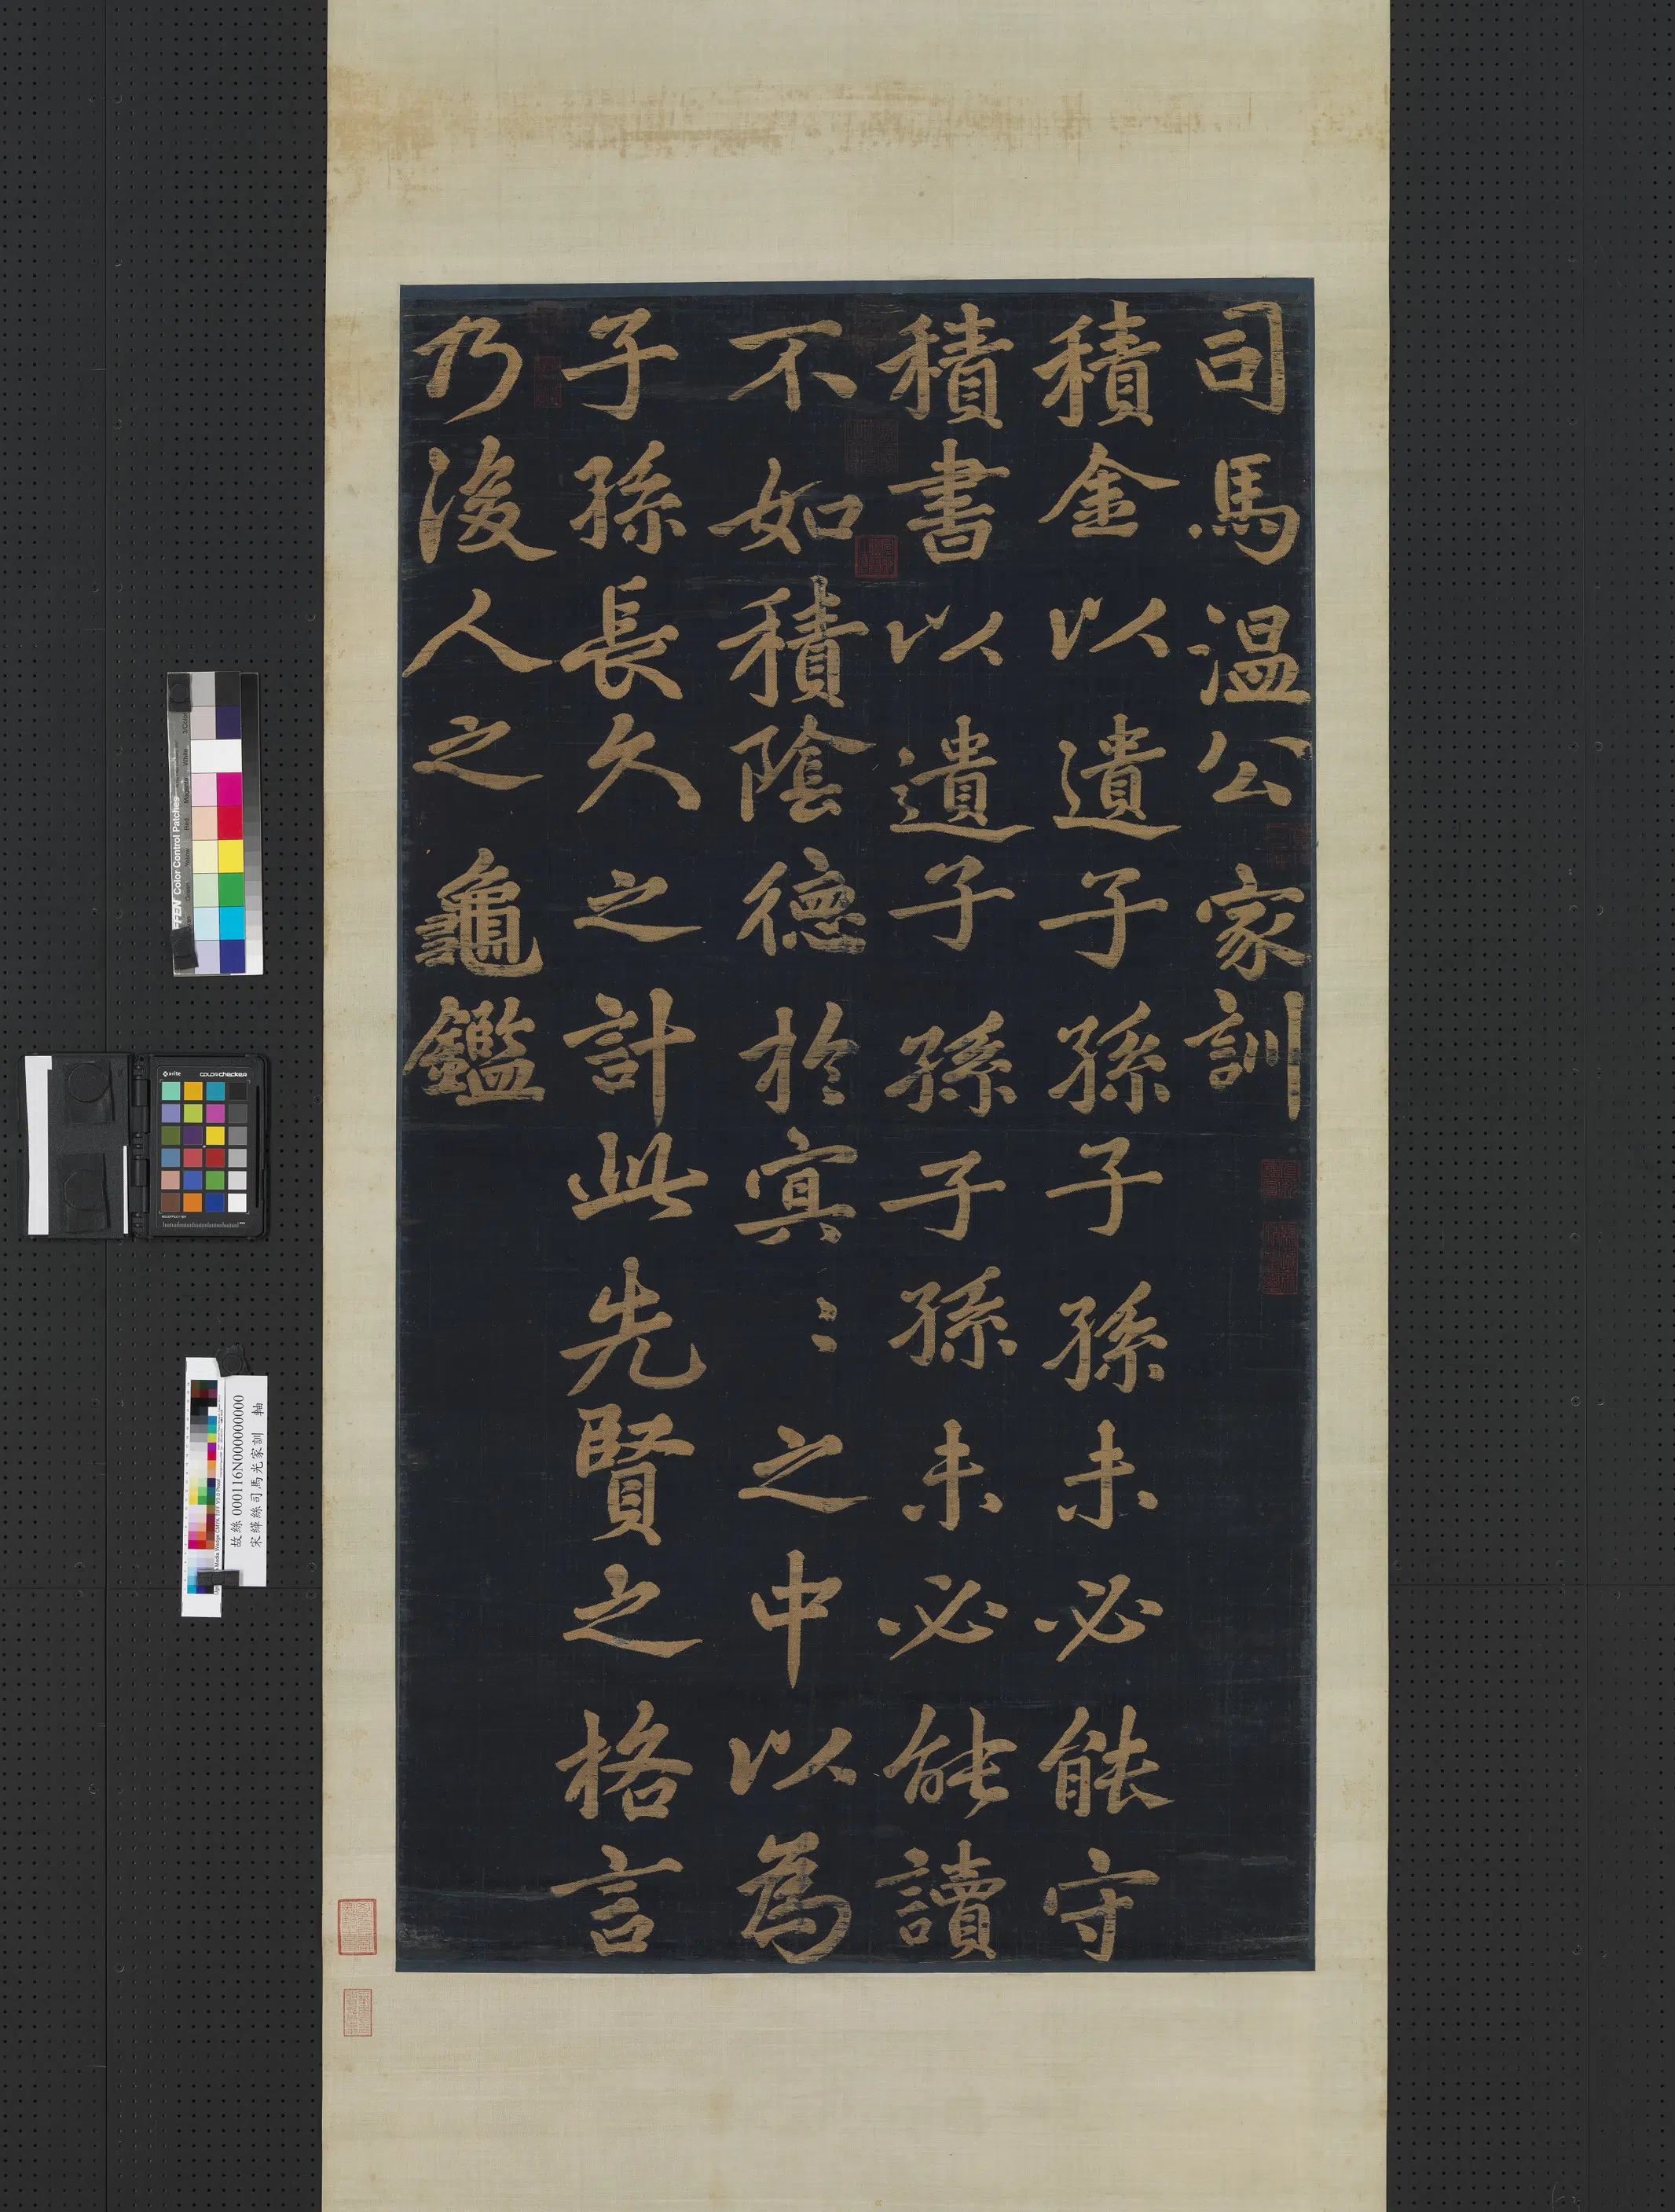 司馬溫公家訓
積金以遺子孫子孫未必能守
積書以遺子孫子孫未必能讀
不如積陰德於冥〻之中以為
子孫長久之計此先賢之格言
乃後人之龜鑑
故絲000116N000000000
宋緙絲司馬光家訓 軸
Color Control Patches
colorchecker